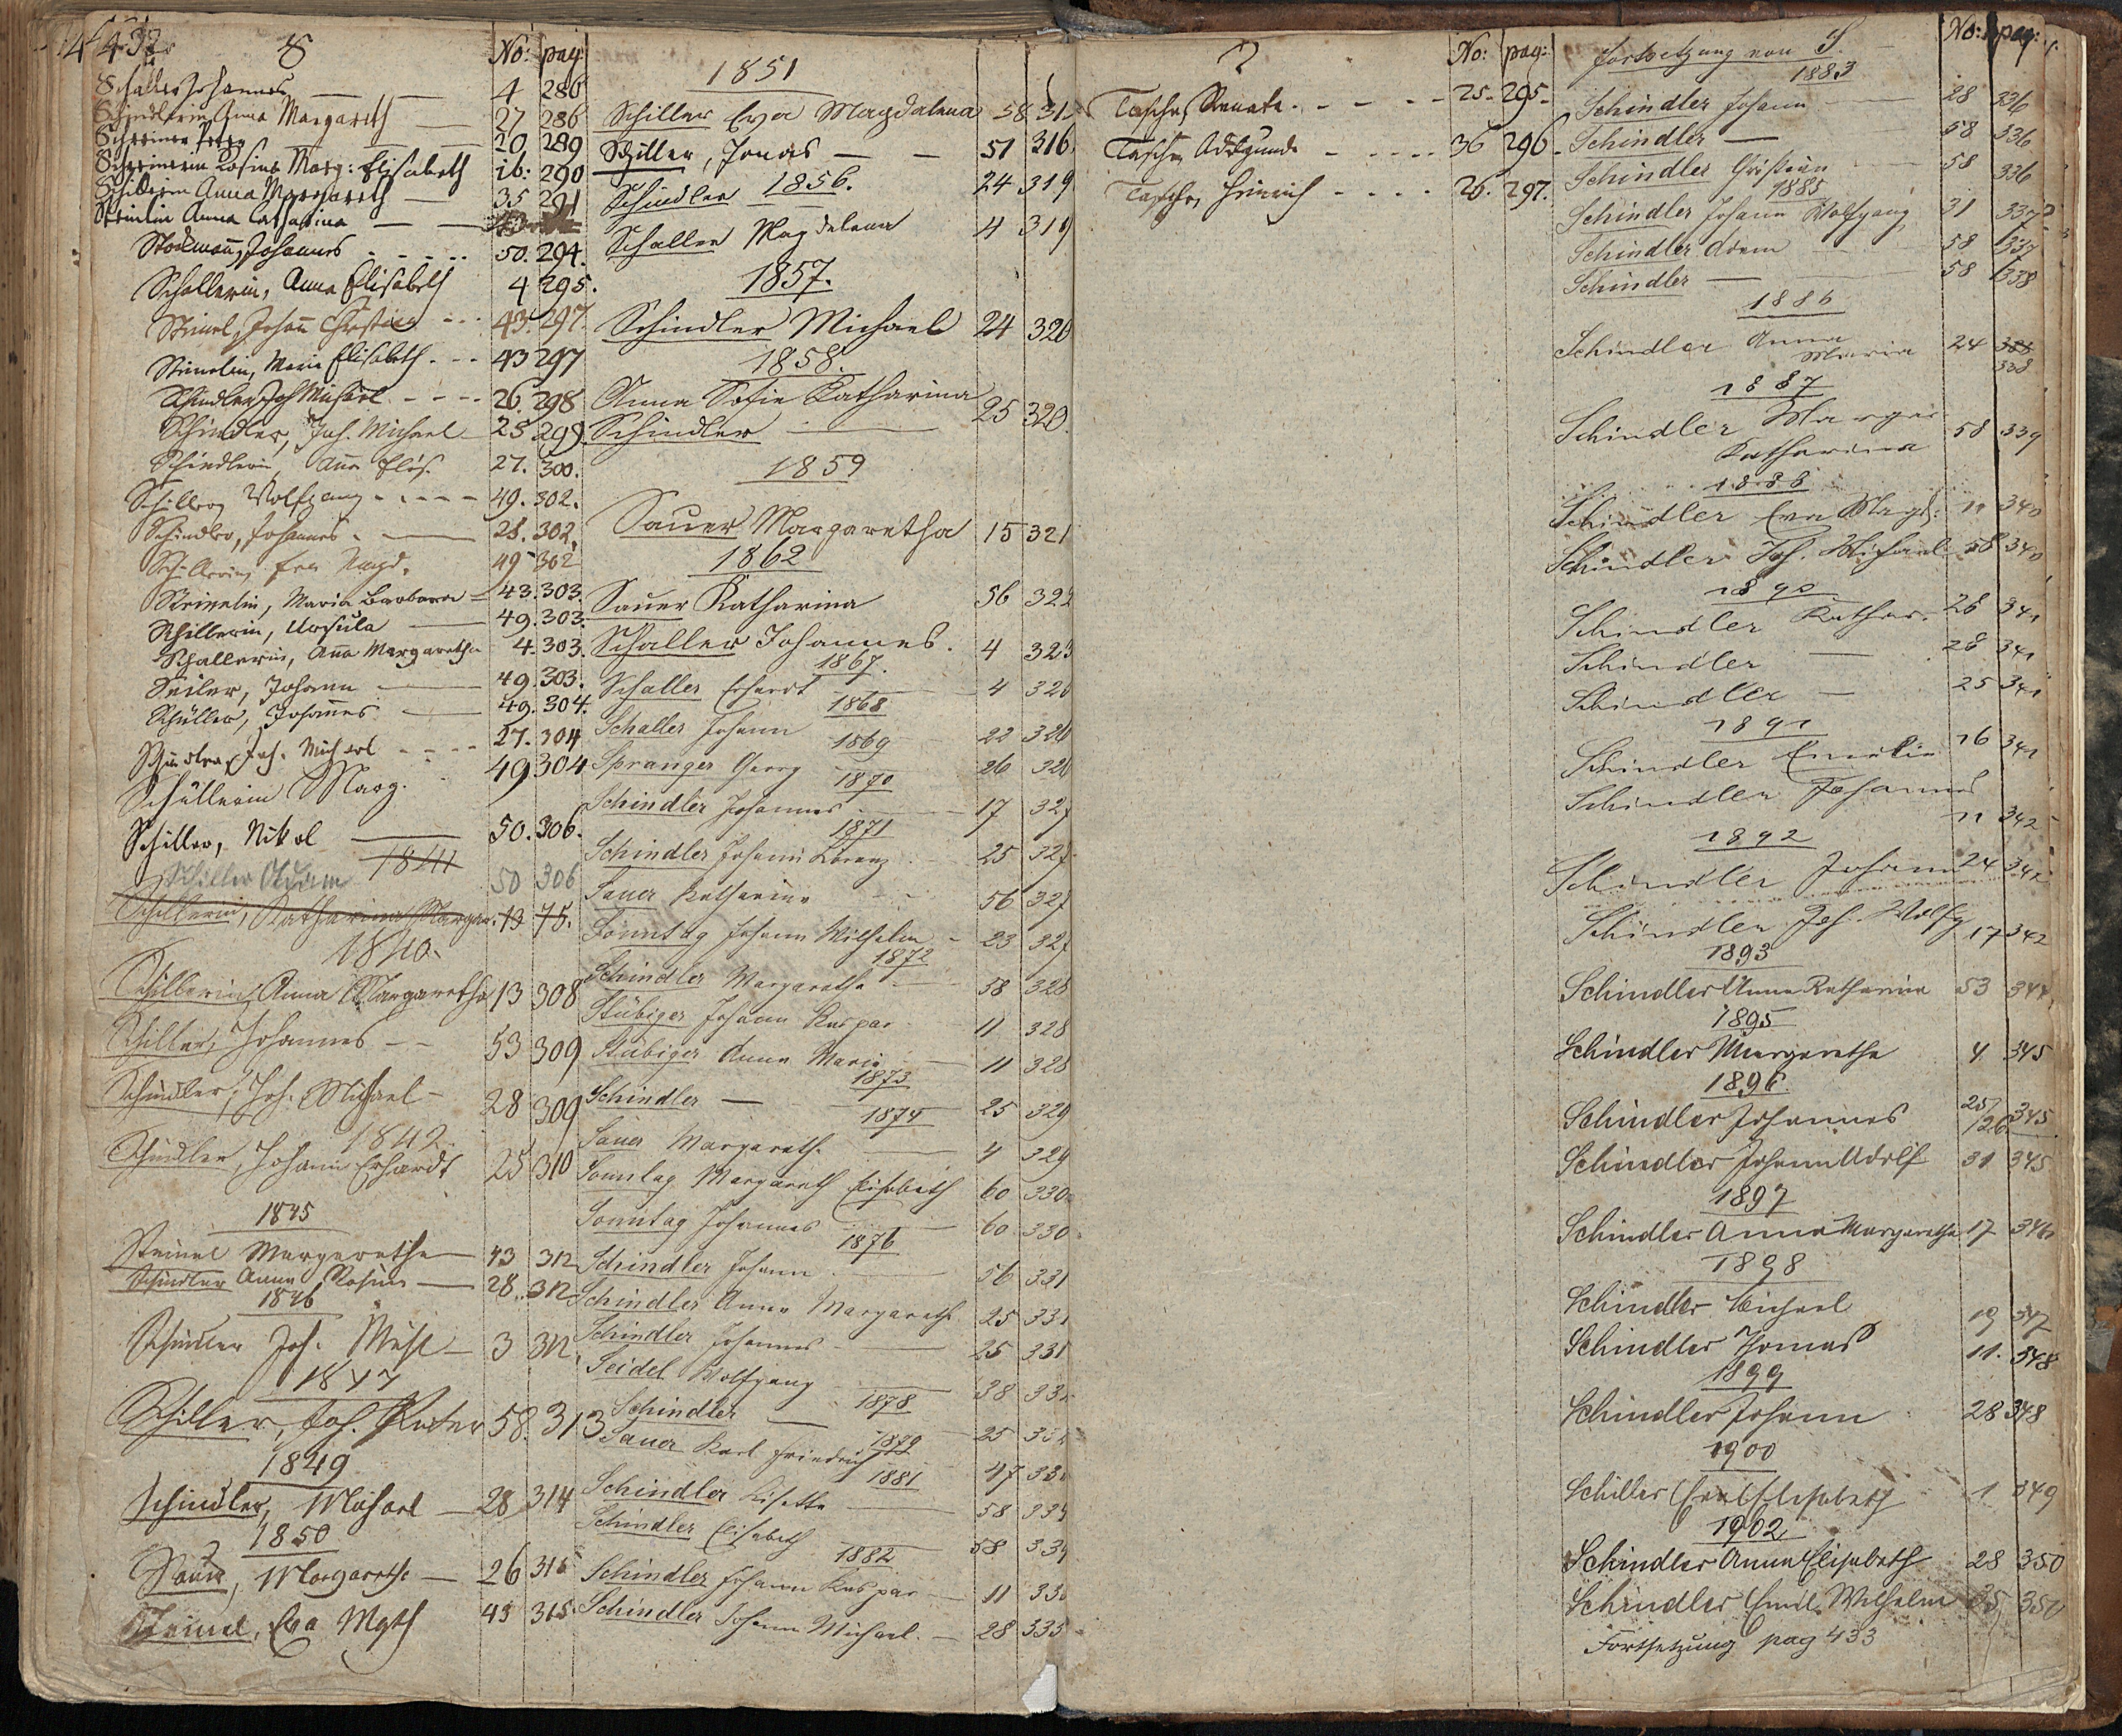 432
S
No: pag:
Schaller Johannes 4 286
Schindlerin Anna Margareth 27 286
Schreiner Peter 20 289
Schreinerin Rosina Marg: Elisabeth ib: 290
Schillerin Anna Margareth 35 291
Anna Catharina
Stockmañ, Johannes 50. 294.
Schallerin, Anna Elisabeth 4 295.
Steinel, Johañ Christian 43. 297.
Steinelin, Maria Elisabeth 43 297
Schindler Joh Michael 26. 298
Schindler, Joh. Michael 25 299
Schindlerin, Aña Elis. 27. 300.
Schiller, Wolfgang 49. 302.
Schindler, Johannes 28. 302.
Schillerin, Eva Magd. 49 302
Steinelin, Maria Barbara 43. 303.
Schillerin, Ursula 49. 303.
Schallerin, Aña Margaretha 4. 303.
Seiler, Johann 49. 303.
Schüller, Johañes 49. 304.
Schindler, Joh. Michael 27. 304
Schüllerin Marg. 49 304
Schiller, Nikol 50. 306.
1841
Schiller Adam 50 306
Schillerin, Katharina Margar. 13 75.
1840.
Schillerin, Anna Margaretha 13 308
Schiller, Johannes 53 309
Schindler, Joh. Michael 28 309
1842
Schindler, Johann Erhardt 25 310
1845
Steinel Margaretha 43 312
Schindler Anna Rosina 28. 312
1846
Schindler Joh. Michl 3 312
1847
Schiller, Joh. Peter 58. 313
1849
Schindler, Michael 28 314
1850
Sauer, Margaretha 26 315
Steinel, Eva Mgth 43 315
1851
Schiller Eva Magdalena 58 315
Schiller, Jonas 51 316
1856.
Schindler 24 319
Schaller Magdalena 4 319
1857.
Schindler Michael 24 320
1858.
Anna Sofie Katharina
Schindler 25 320.
1859
Sauer Margaretha 15 321
1862
Sauer Katharina 56 322
Schaller Johannes. 4 323
1867.
Schaller Erhardt 4 326
1868
Schaller Johann 22 326
1869
Spranger Georg 26 326
1870
Schindler Johannes 17 327
1871
Schindler Johann Lorenz 25 327
Sauer Katharina 56 327
Sonntag Johann Wilhelm 23 327
1872
Schindler Margaretha 58 328
Stübiger Johann Kaspar 11 328
Stübiger Anna Maria 11 328
1873
Schindler 25 329
1874
Sauer Margareth. 4 329
Sonntag Margareth Elisabeth 60 330
Sonntag Johannes 60 330
1876
Schindler Johann 56 331
Schindler Anna Margareth 25 331
Schindler Johannes 25 331
Seidel Wolfgang 38
1878
Schindler 25
1879
Sauer Karl Friedrich 47
1881
Schindler Lisette 58 334
Schindler Elisabeth 58 334
1882
Schindler Johann Kaspar 11
Schindler Johann Michael. 28 335
T
No: pag:
Tascher, Renata. 25. 295.
Tascher, Adelgunde 36 296.
Tascher, Heinrich 26. 297.
Fortsetzung von S.
No: pag:
1883
Schindler Johann 28 336
Schindler 58 336
Schindler Christian 58 336
1885
Schindler Johann Wolfgang 31 337
Schindler Adam 58 337
Schindler 58 338
1886
Schindler Anna Maria 24 338
338
1887
Schindler Margar.
Katharina 58 339
1888
Schindler Eva Magd: 11 340
Schindler Joh. Michael 58 340
1890
Schindler Kathar. 28 341
Schindler 28 341
Schindler 25 341
1891
Schindler Emilie 16 341
Schindler Johannes 11 342
1892
Schindler Johann 24 342
Schindler Joh. Wolfg 17 342
1893
Schindler Anna Katharina 53 344
1895
Schindler Margaretha 4 345
1896
Schindler Johannes 25/26 345
Schindler Johann Adolf 31 345
1897
Schindler Anna Margaretha 17 346
1898
Schindler Michael 19 347
Schindler Thomas 11. 348
1899
Schindler Johann 28 348
1900
Schiller Elisabeth 1 349
1902
Schindler Anna Elisabeth 28 350
Schindler Emil Wilhelm 25 350
Fortsetzung pag 433